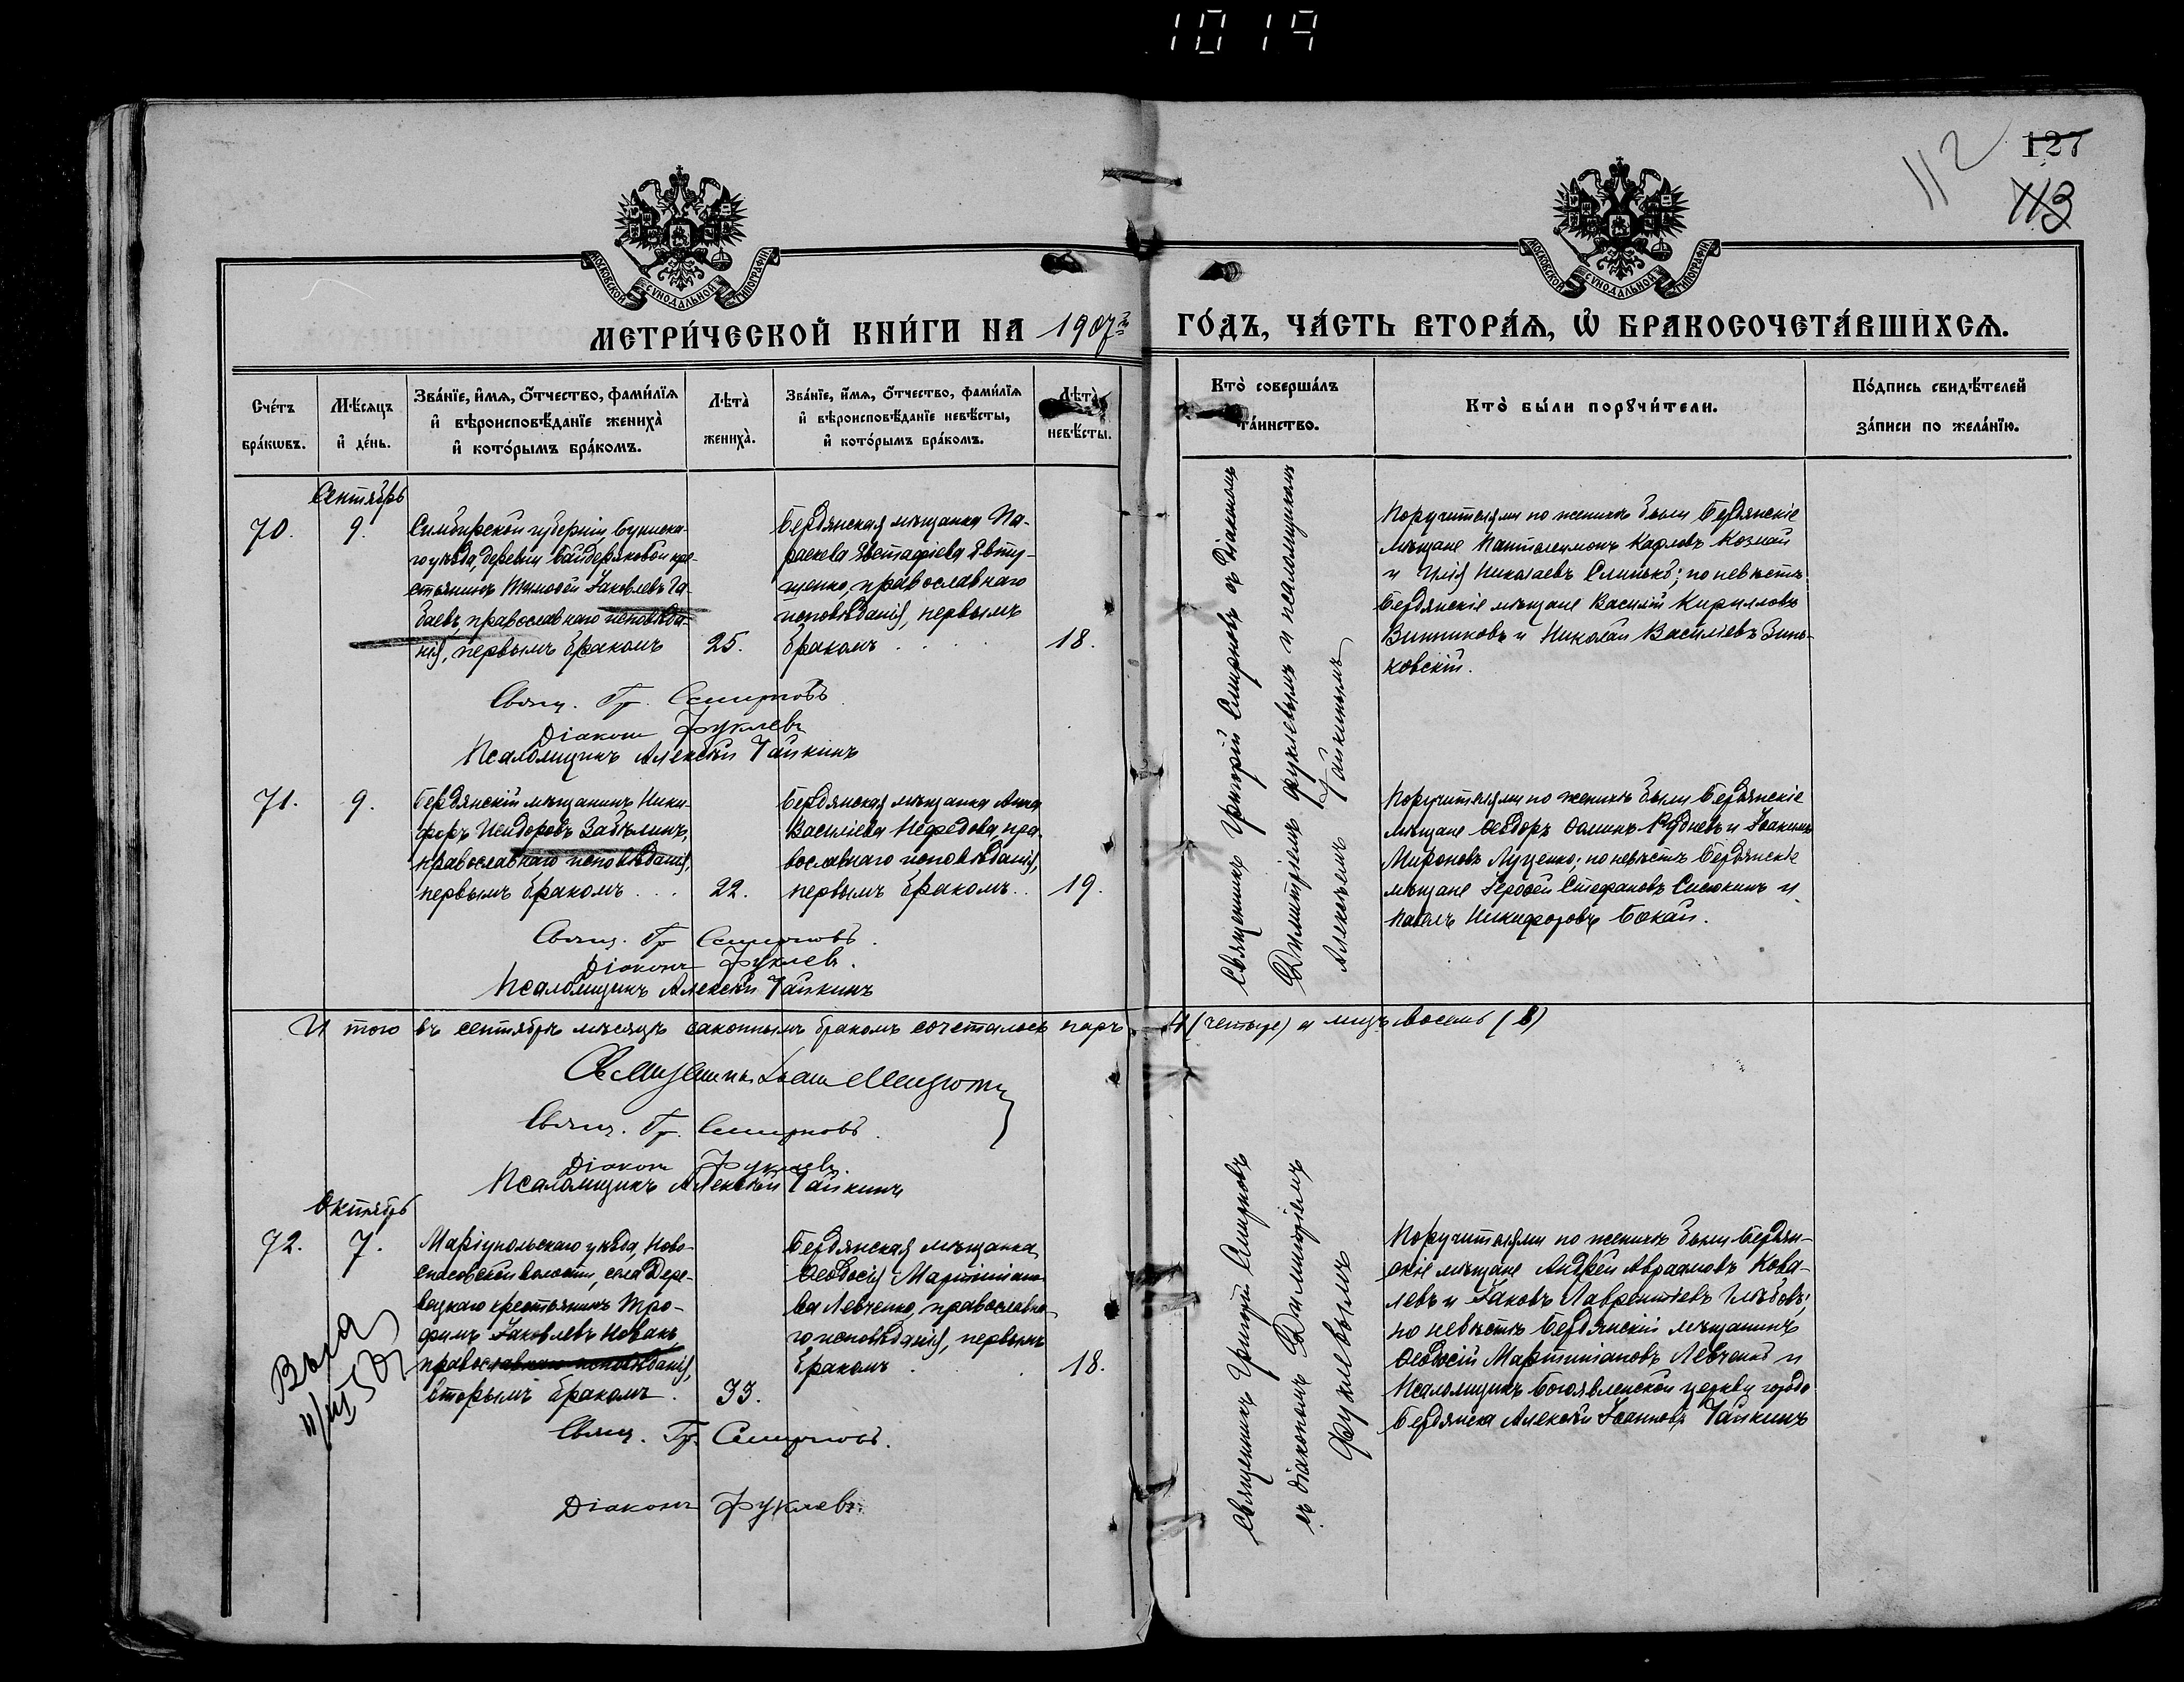 1019
112
127
113
МОСКОВСКОЙ СѴНОДАЛЬНОЙ ТИПОГРАФІИ
МОСКОВСКОЙ СѴНОДАЛЬНОЙ ТИПОГРАФІИ
МЕТРИ́ЧЕСКОЙ КНИ́ГИ НА 1907й ГО́ДЪ, ЧА́СТЬ ВТОРА́Ѧ, Ѡ҆ БРАКОСОЧЕТА́ВШИХСѦ.
Сче́тъ бра́кѡвъ.
Мѣ́сяцъ и҆ де́нь.
Зва́нїе, и҆́мѧ, ѻ҆́тчество, фами́лїѧ и҆ вѣроисповѣ́данїе жениха̀ и҆ кото́рымъ бра́комъ.
Лѣта̀ жениха̀.
Зва́нїе, и҆́мѧ, ѻ҆́тчество, фами́лїѧ и҆ вѣроисповѣ́данїе невѣ́сты, и҆ кото́рымъ бра́комъ.
Лѣта̀ невѣ́сты.
Кто̀ соверша́лъ та́инство.
Кто̀ бы́ли порꙋчи́тели.
По́дпись свидѣ́телей за́писи по жела́нїю.
Сентябрь
70.
9.
Симбирской губерніи, Буинска-
го уѣзда, деревни Байдеряковой кре-
стьянинъ Тимоѳей Іаковлевъ Га-
баевъ, православнаго исповѣда-
нія, первымъ бракомъ
25.
Бердянская мѣщанка Па-
раскева Евстафіева Евту-
шенко, православнаго
исповѣданія, первымъ
бракомъ
18.
Священникъ Григорій Смирновъ съ діакономъ
Димитріемъ Фуклевымъ и псаломщикомъ
Алексѣемъ Чайкинымъ
Поручителями по женихѣ были Бердянскіе
мѣщане Пантелеимонъ Карповъ Кознай
и Илія Николаевъ Слинько; по невѣстѣ
Бердянскіе мѣщане Василій Кирилловъ
Винниковъ и Николай Васильевъ Зинь-
ковскій.
Свящ. Гр. Смирновъ
Діаконъ Фуклевъ
Псаломщикъ Алексѣй Чайкинъ
71.
9.
Бердянскій мѣщанинъ Ники-
форъ Исидоровъ Забѣлинъ,
православнаго исповѣданія,
первымъ бракомъ
22.
Бердянская мѣщанка Анна
Василіева Нефедова, пра-
вославнаго исповѣданія,
первымъ бракомъ
19.
Поручителями по женихѣ были Бердянскіе
мѣщане Ѳеодоръ Ѳоминъ Рудневъ и Іоакимъ
Мироновъ Луценко; по невѣстѣ Бердянскіе
мѣщане Іероѳей Стефановъ Сисюкинъ и
Павелъ Никифоровъ Бокай.
Свящ. Гр Смирновъ.
Діаконъ Фуклевъ.
Псаломщикъ Алексѣй Чайкинъ
И того въ сентябрѣ мѣсяцѣ законнымъ бракомъ сочеталось паръ 4 (четыре) а лицъ восемь (8)
Свящ. Гр. Смирновъ.
Діаконъ Фуклевъ.
Псаломщикъ Алексѣй Чайкинъ
Октябрь
72.
7.
Маріупольскаго уѣзда, Ново-
спасовской волости, села Дере-
вецкаго крестьянинъ Тро-
фимъ Іаковлевъ Новакъ,
православнаго исповѣданія,
вторымъ бракомъ.
33.
Бердянская мѣщанка
Ѳеодосія Мартиніано-
ва Левченко, православна-
го исповѣданія, первымъ
бракомъ
18.
Священникъ Григорій Смирновъ
съ діакономъ Димитріемъ
Фуклевымъ
Поручителями по женихѣ были Бердян-
скіе мѣщане Андрей Авраамовъ Кова-
левъ и Іаковъ Лаврентіевъ Глѣбовъ;
по невѣстѣ Бердянскій мѣщанинъ
Ѳеодосій Мартиніановъ Левченко и
Псаломщикъ Богоявленской церкви города
Бердянска Алексѣй Іоанновъ Чайкинъ
Свящ. Гр. Смирновъ.
Діаконъ Фуклевъ.